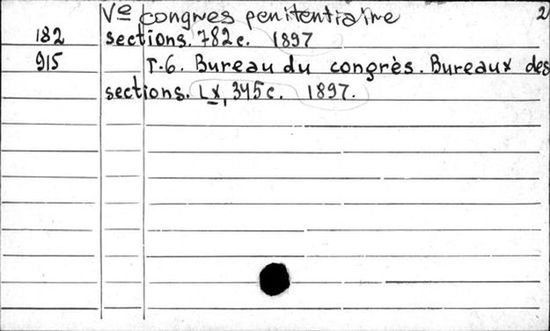 Vᵉ congres penitentiaire 2
182 sections. 782c. 1897
915 T.6. Bureau du congrès. Bureaux des
sections. Lx, 345c. 1897.